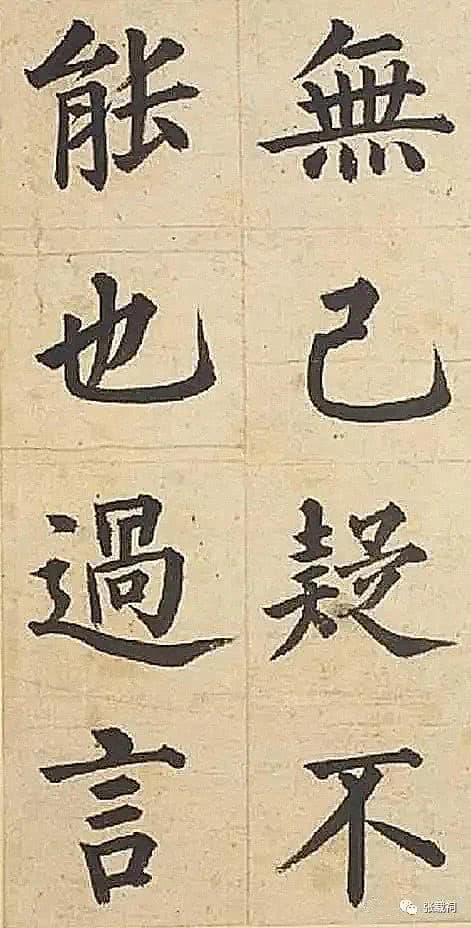 無己疑不
能也過言
张载祠